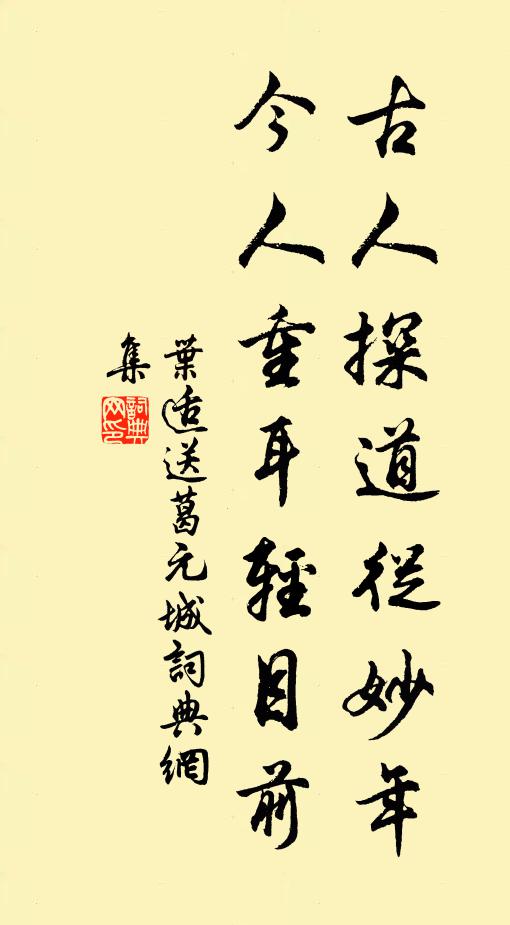 古人探道從妙年
今人重耳輕目前
葉適送葛元城詞典網
集
詞典網印